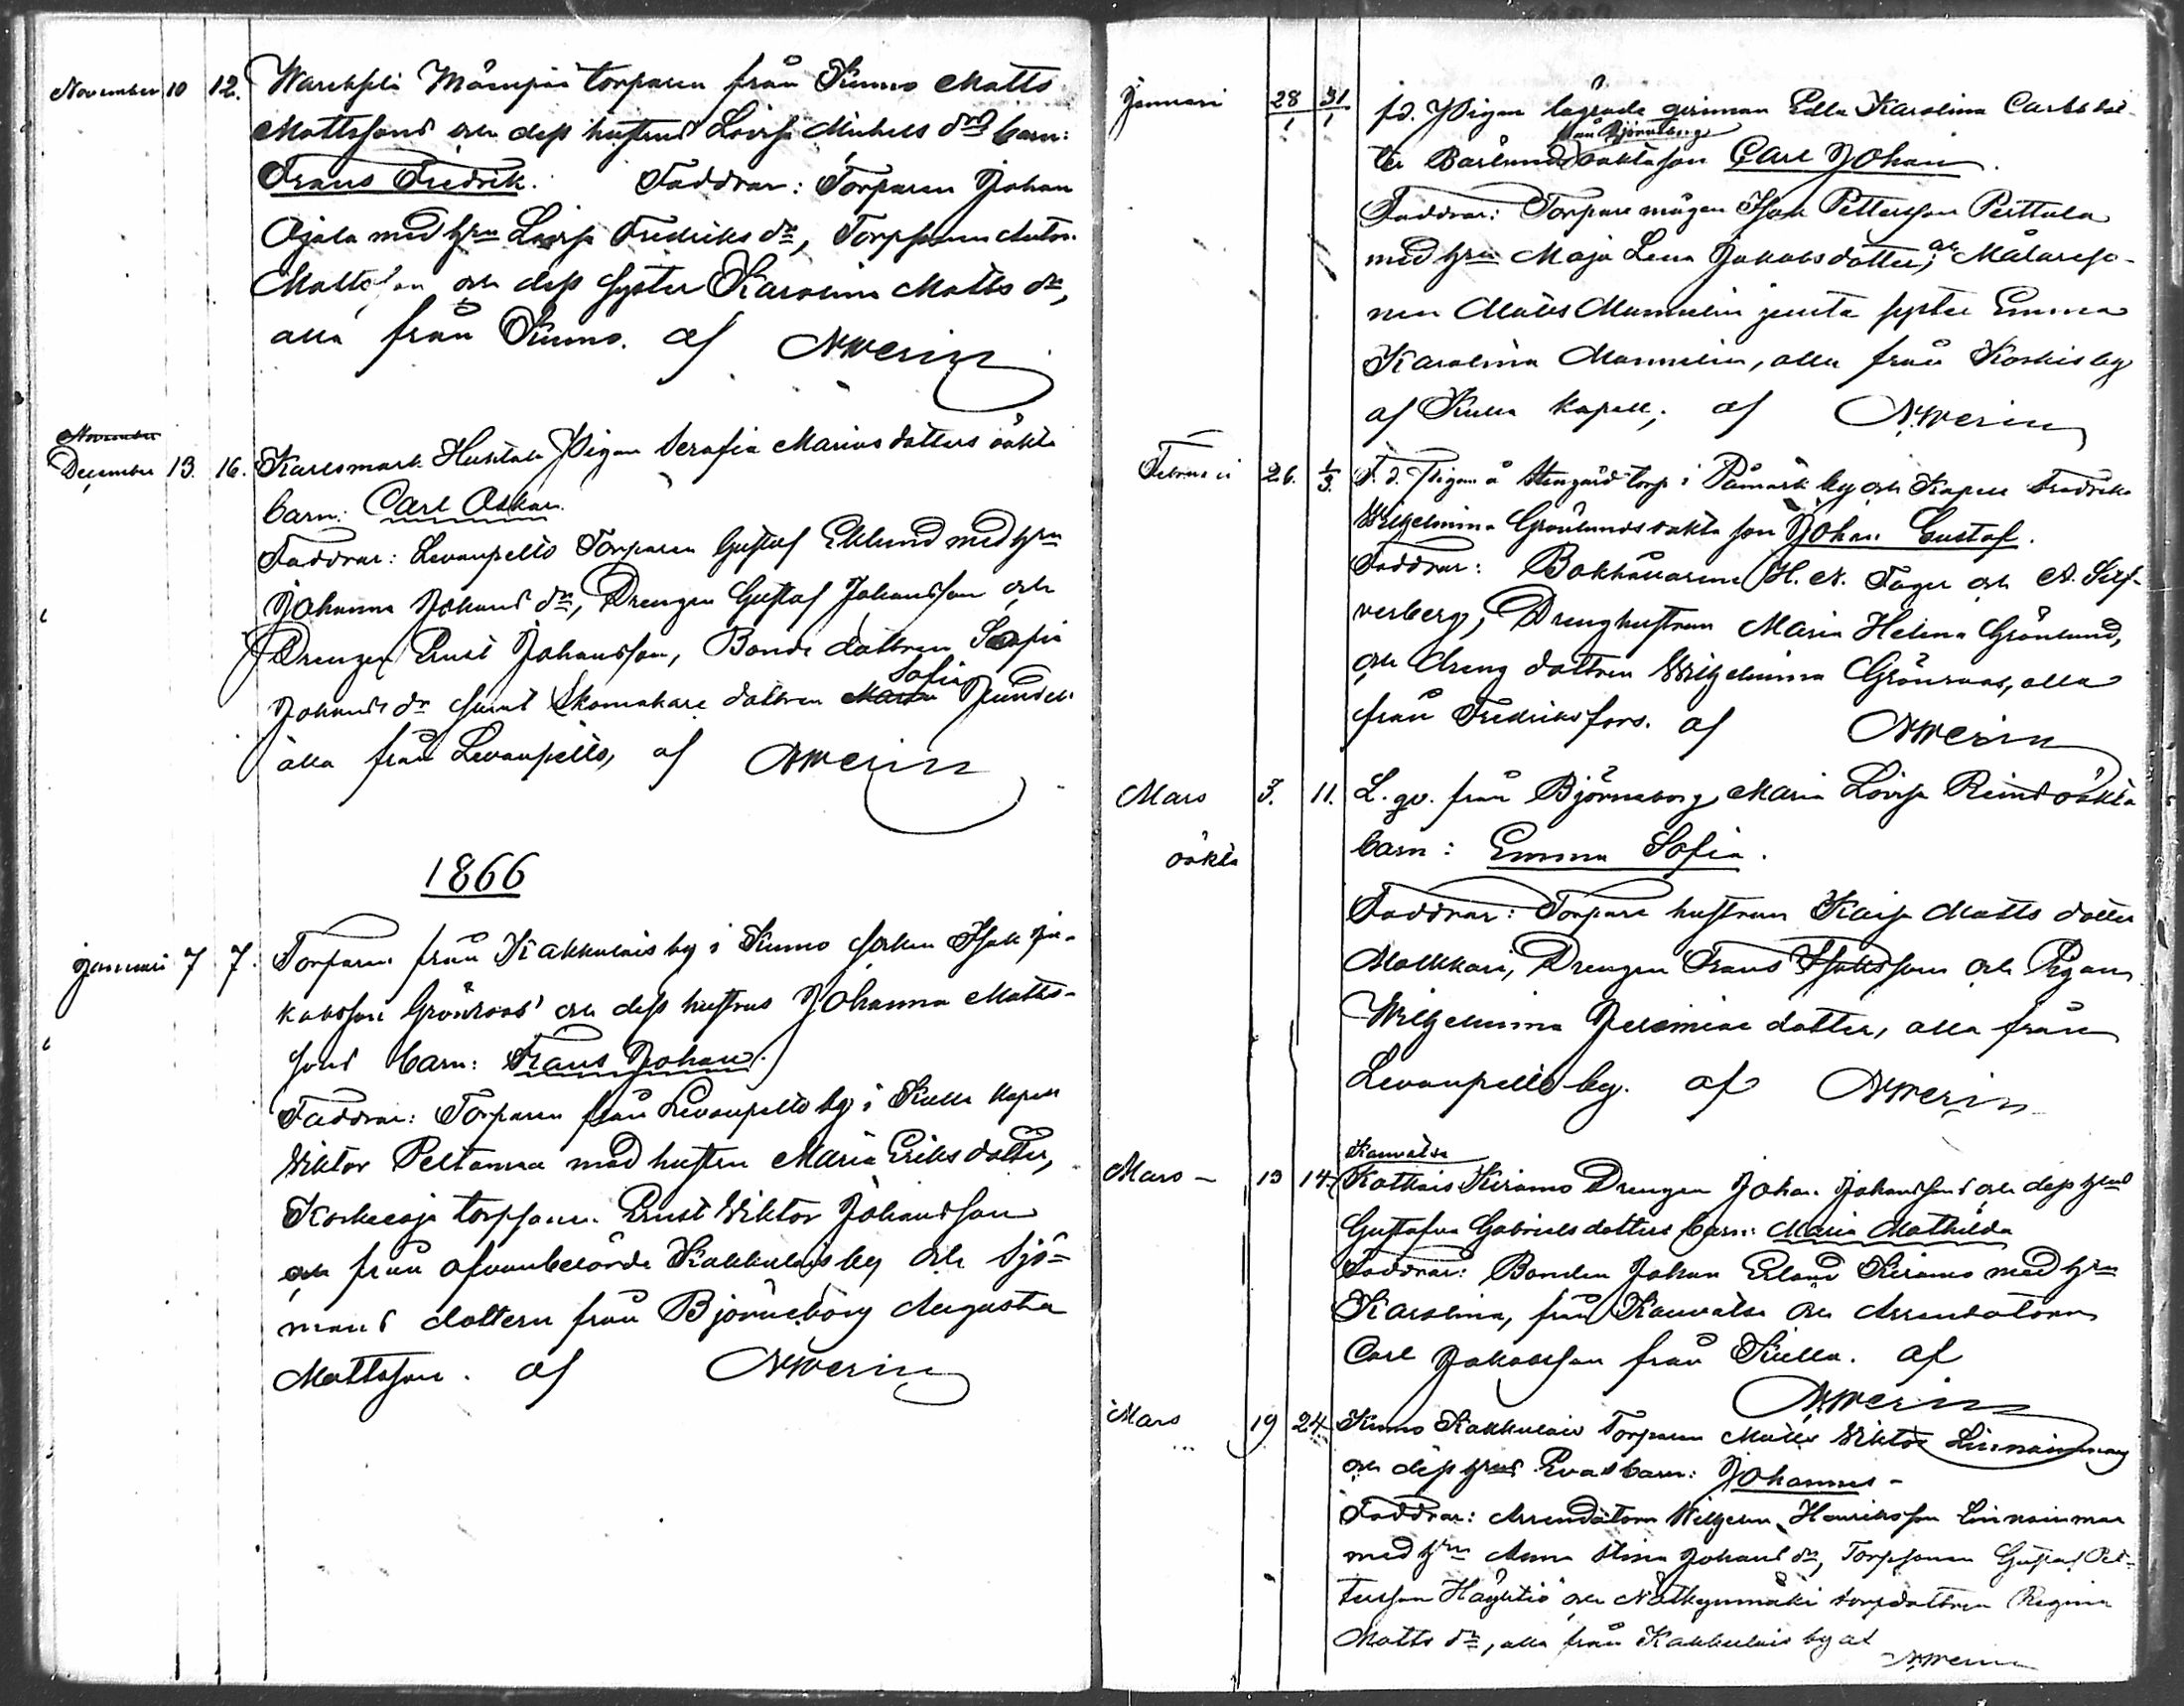 November 10 12. Torparen från Kumo Matts
Mattssons och dess hustrus Lovisa Michels drs barn:
Frans Fredrik. Faddrar: Torparen Johan
Ojala med hru Lovisa Fredriks dr, Torpsonen Anton
Mattsson och dess syster Karolina Matts dr,
alla från Kumo. af
November
December 13. 16. Karlsmark Pigan Serafia Mariasdotters oäkta
barn: Carl Oskar.
Faddrar: Levanpelto Torparen Gustaf Eklund med hru
Johanna Johans dr, Drengen Gustaf Johansson och
Drengen Ernst Johansson, Bonde dottren
Sofia
Johans dr samt Skomakare dottren Maria
alla från Levanpelto, af
1866
Januari 7 7. Torparen från Kakkulais by i Kumo socken Isak Ja-
kobsson Grönroos' och dess hustrus Johanna Matts-
sons barn: Frans Johan.
Faddrar: Torparen från Levanpelto by i Kulla Kapell
Wiktor Peltomaa med hustru Maria Eriksdotter,
Torpsonen Ernst Wiktor Johansson
och från ofvanberörde Kakkulais by och Sjö-
mans dottern från Björneborg Augusta
Mattsson. af
Januari 28/1 31/1 fd. Pigan lägrade qvinnan Edla Karolina Carlsdot-
från Björneborg
ter Bärlunds oäkta son Carl Johan.
Faddrar: Torpare mågen Isak Pettersson Perttula
med hru Maja Lena Jakobsdotter, och Målareso-
nen Matts Mannelin jemte syster Emma
Karolina Mannelin, alla från Koskis by
af Kulla Kapell, af
Februari 26. 1/3. F. d. Pigan å Stengård torp i Påmark by och Kapell Fredrika
Wilhelmina Grönlunds oäkta son Johan Gustaf.
Faddrar: Bokhållarene H. A. Fager och A. Silf-
verberg, Drenghustrun Maria Helena Grönlund,
och dreng dottren Wilhelmina Grönroos, alla
från Fredriksfors. af
Mars 3. 11. L. qv. från Björneborg Maria Lovisa Reinds oäkta
oäkta barn: Emma Sofia.
Faddrar: Torpare hustrun Kaisa Matts dotter
Drengen Frans Isaksson och Pigan
Wilhelmina Jeremiae dotter, alla från
Levanpelto by. af
Kauvatsa
Mars - 13 14 Drengen Johan Johanssons och dess hrus
Gustafva Gabrielsdotters barn: Maria Mathilda
Faddrar: Bonden Johan Erland Keramo med hru
Karolina, från Kauvatsa och Arrendatorn
Carl Jakobsson från Kulla. af
Mars 19 24 Kumo Kakkulais Torparen Matts Wiktor Linnainmaa
och dess hrus Evas barn: Johannes -
Faddrar: Arrendatorn Wilhelm Henriksson Linnainmaa
med hru Anna Stina Johans dr, Torpsonen Gustaf Pet-
tersson och torpdottren Regina
Matts dr, alla från Kakkulais by af